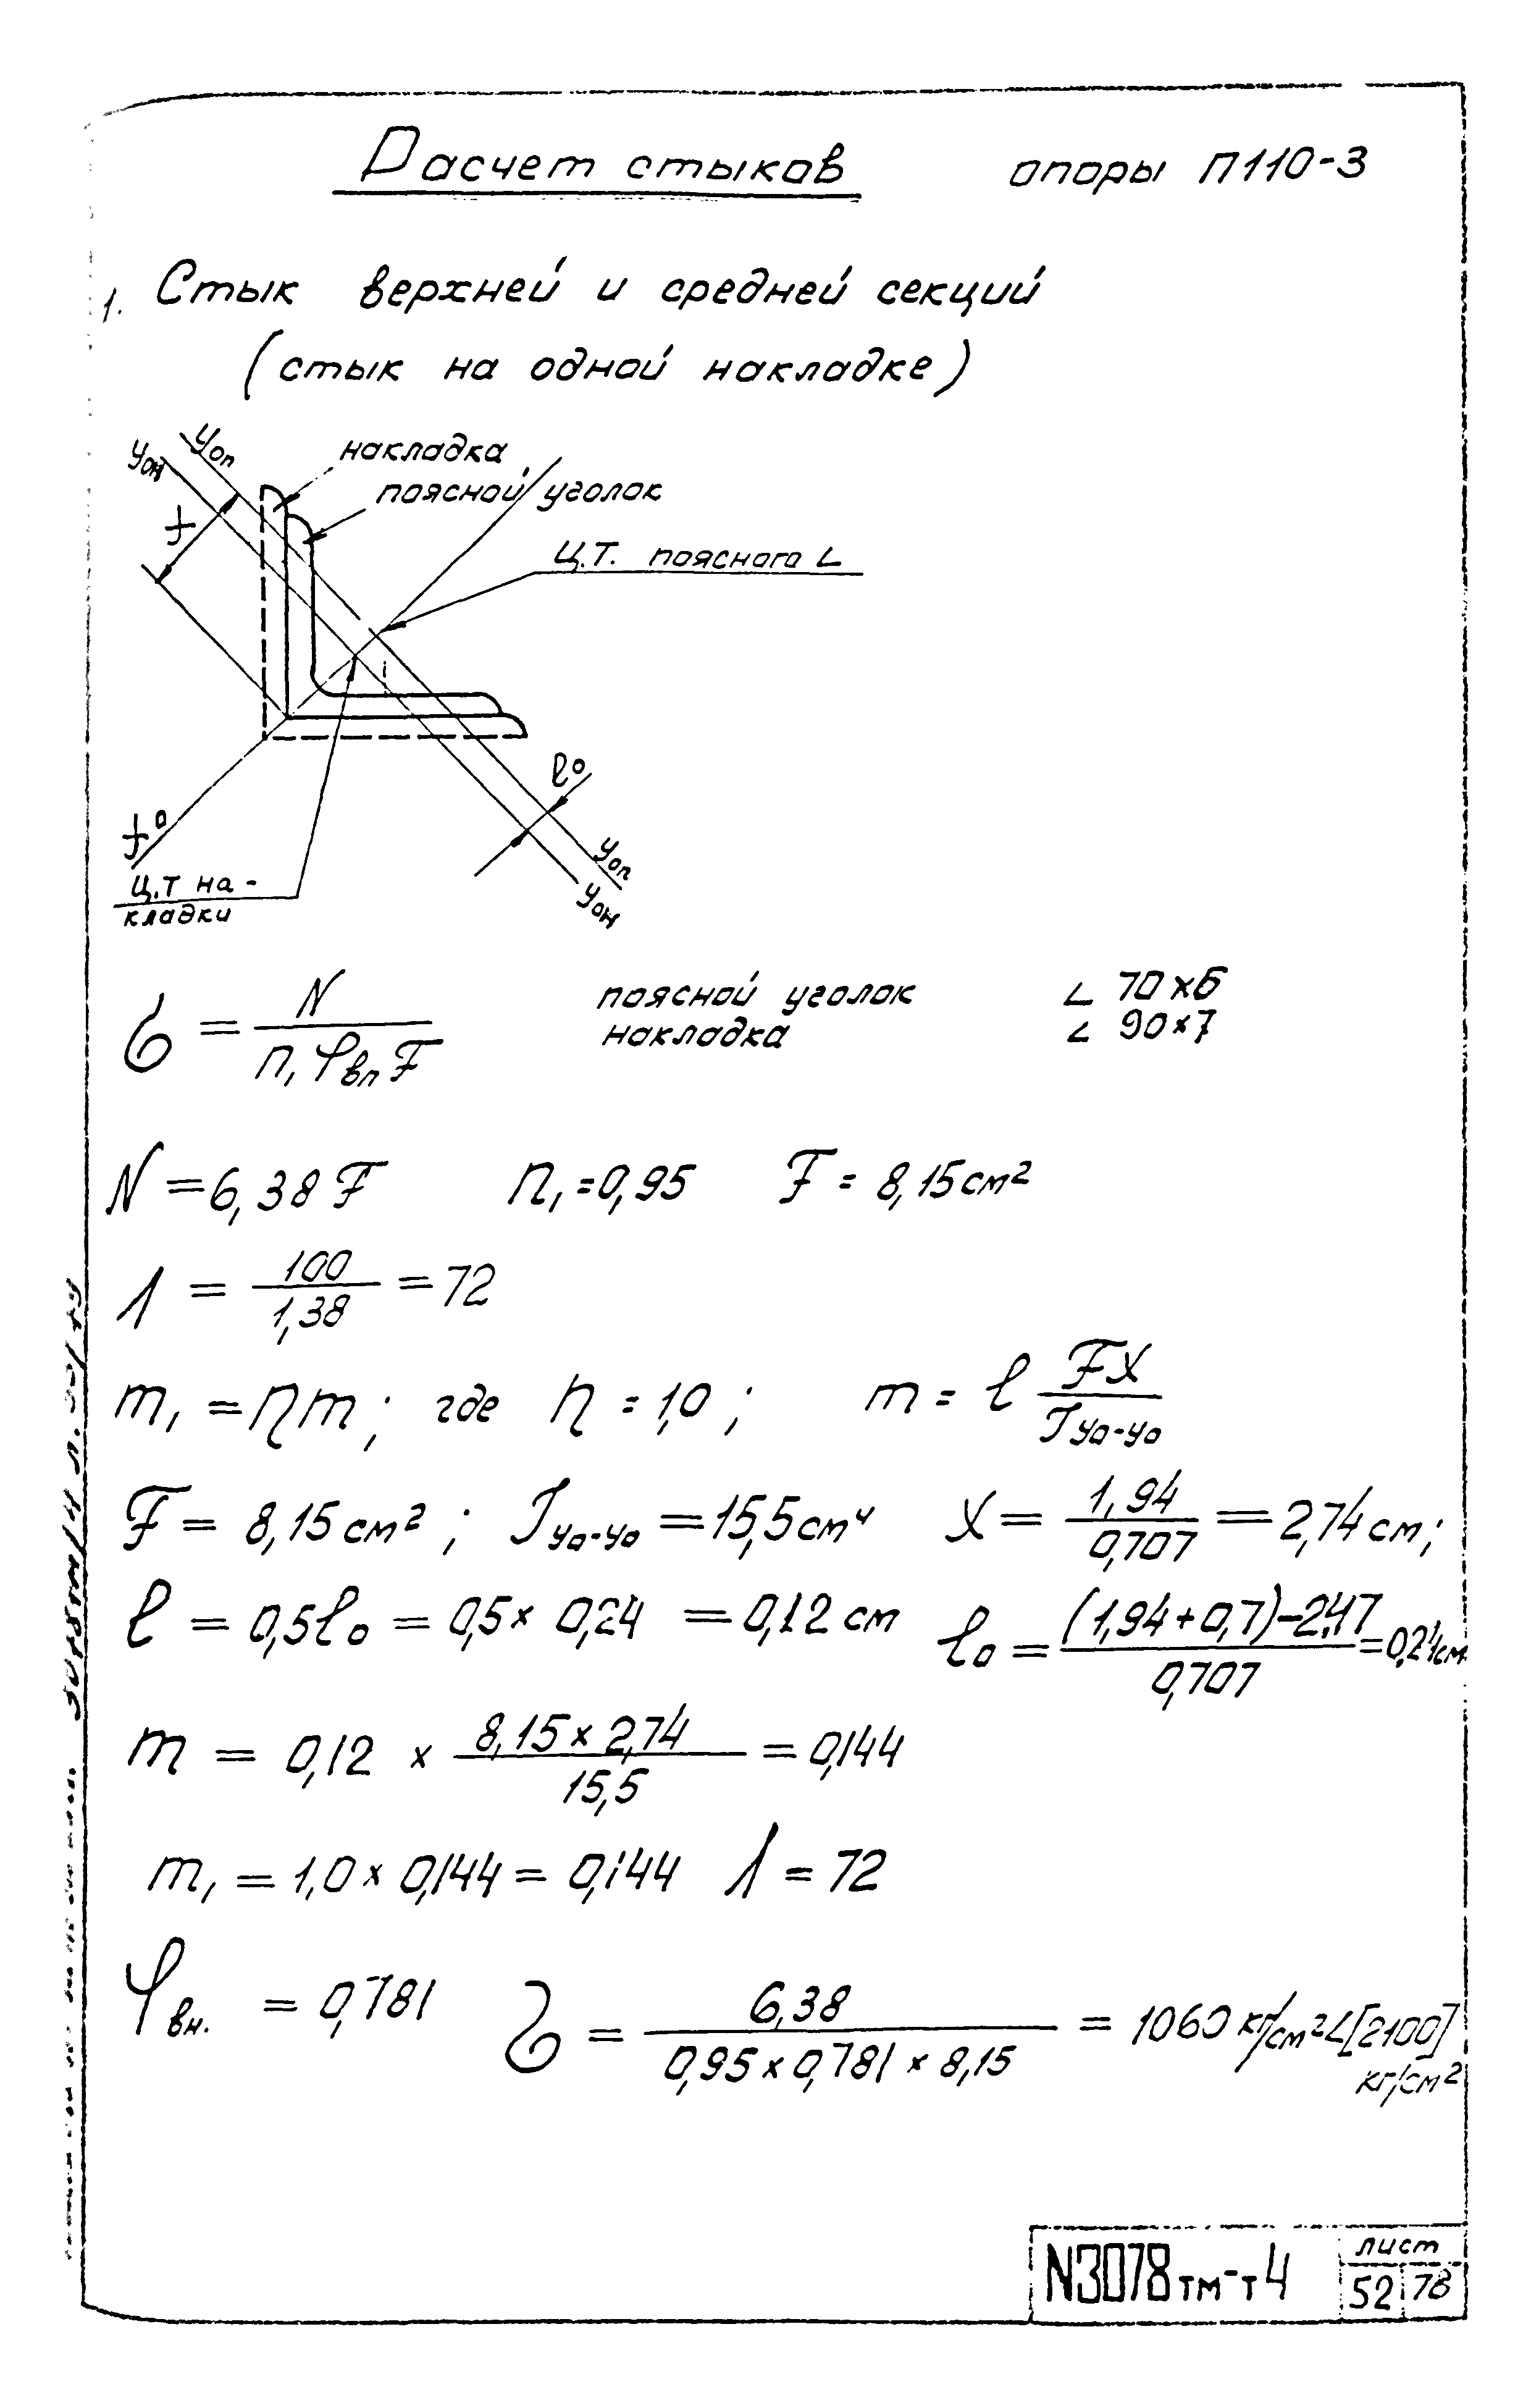 Расчет стыков опоры П110-3
1. Стык верхней и средней секций
(стык на одной накладке)
yон yоп накладка
поясной уголок
f
Ц.Т. поясного L
l₀
f⁰
yоп
yон
Ц.Т на-
кладки
σ = N / (n₁ φвп F)
поясной уголок L 70×6
накладка L 90×7
N = 6,38 F n₁ = 0,95 F = 8,15 см²
λ = 100 / 1,38 = 72
m₁ = ηm; где η = 1,0; m = l FX / Jyo-yo
F = 8,15 см²; Jyo-yo = 15,5 см⁴ X = 1,94 / 0,707 = 2,74 см;
l = 0,5 l₀ = 0,5 × 0,24 = 0,12 см l₀ = (1,94 + 0,7) – 2,47 / 0,707 = 0,24 см
m = 0,12 × 8,15 × 2,74 / 15,5 = 0,144
m₁ = 1,0 × 0,144 = 0,144 λ = 72
φвн. = 0,781 σ = 6,38 / 0,95 × 0,781 × 8,15 = 1060 кг/см² < [2100]
кг/см²
N3078тм-т4
лист
52 78